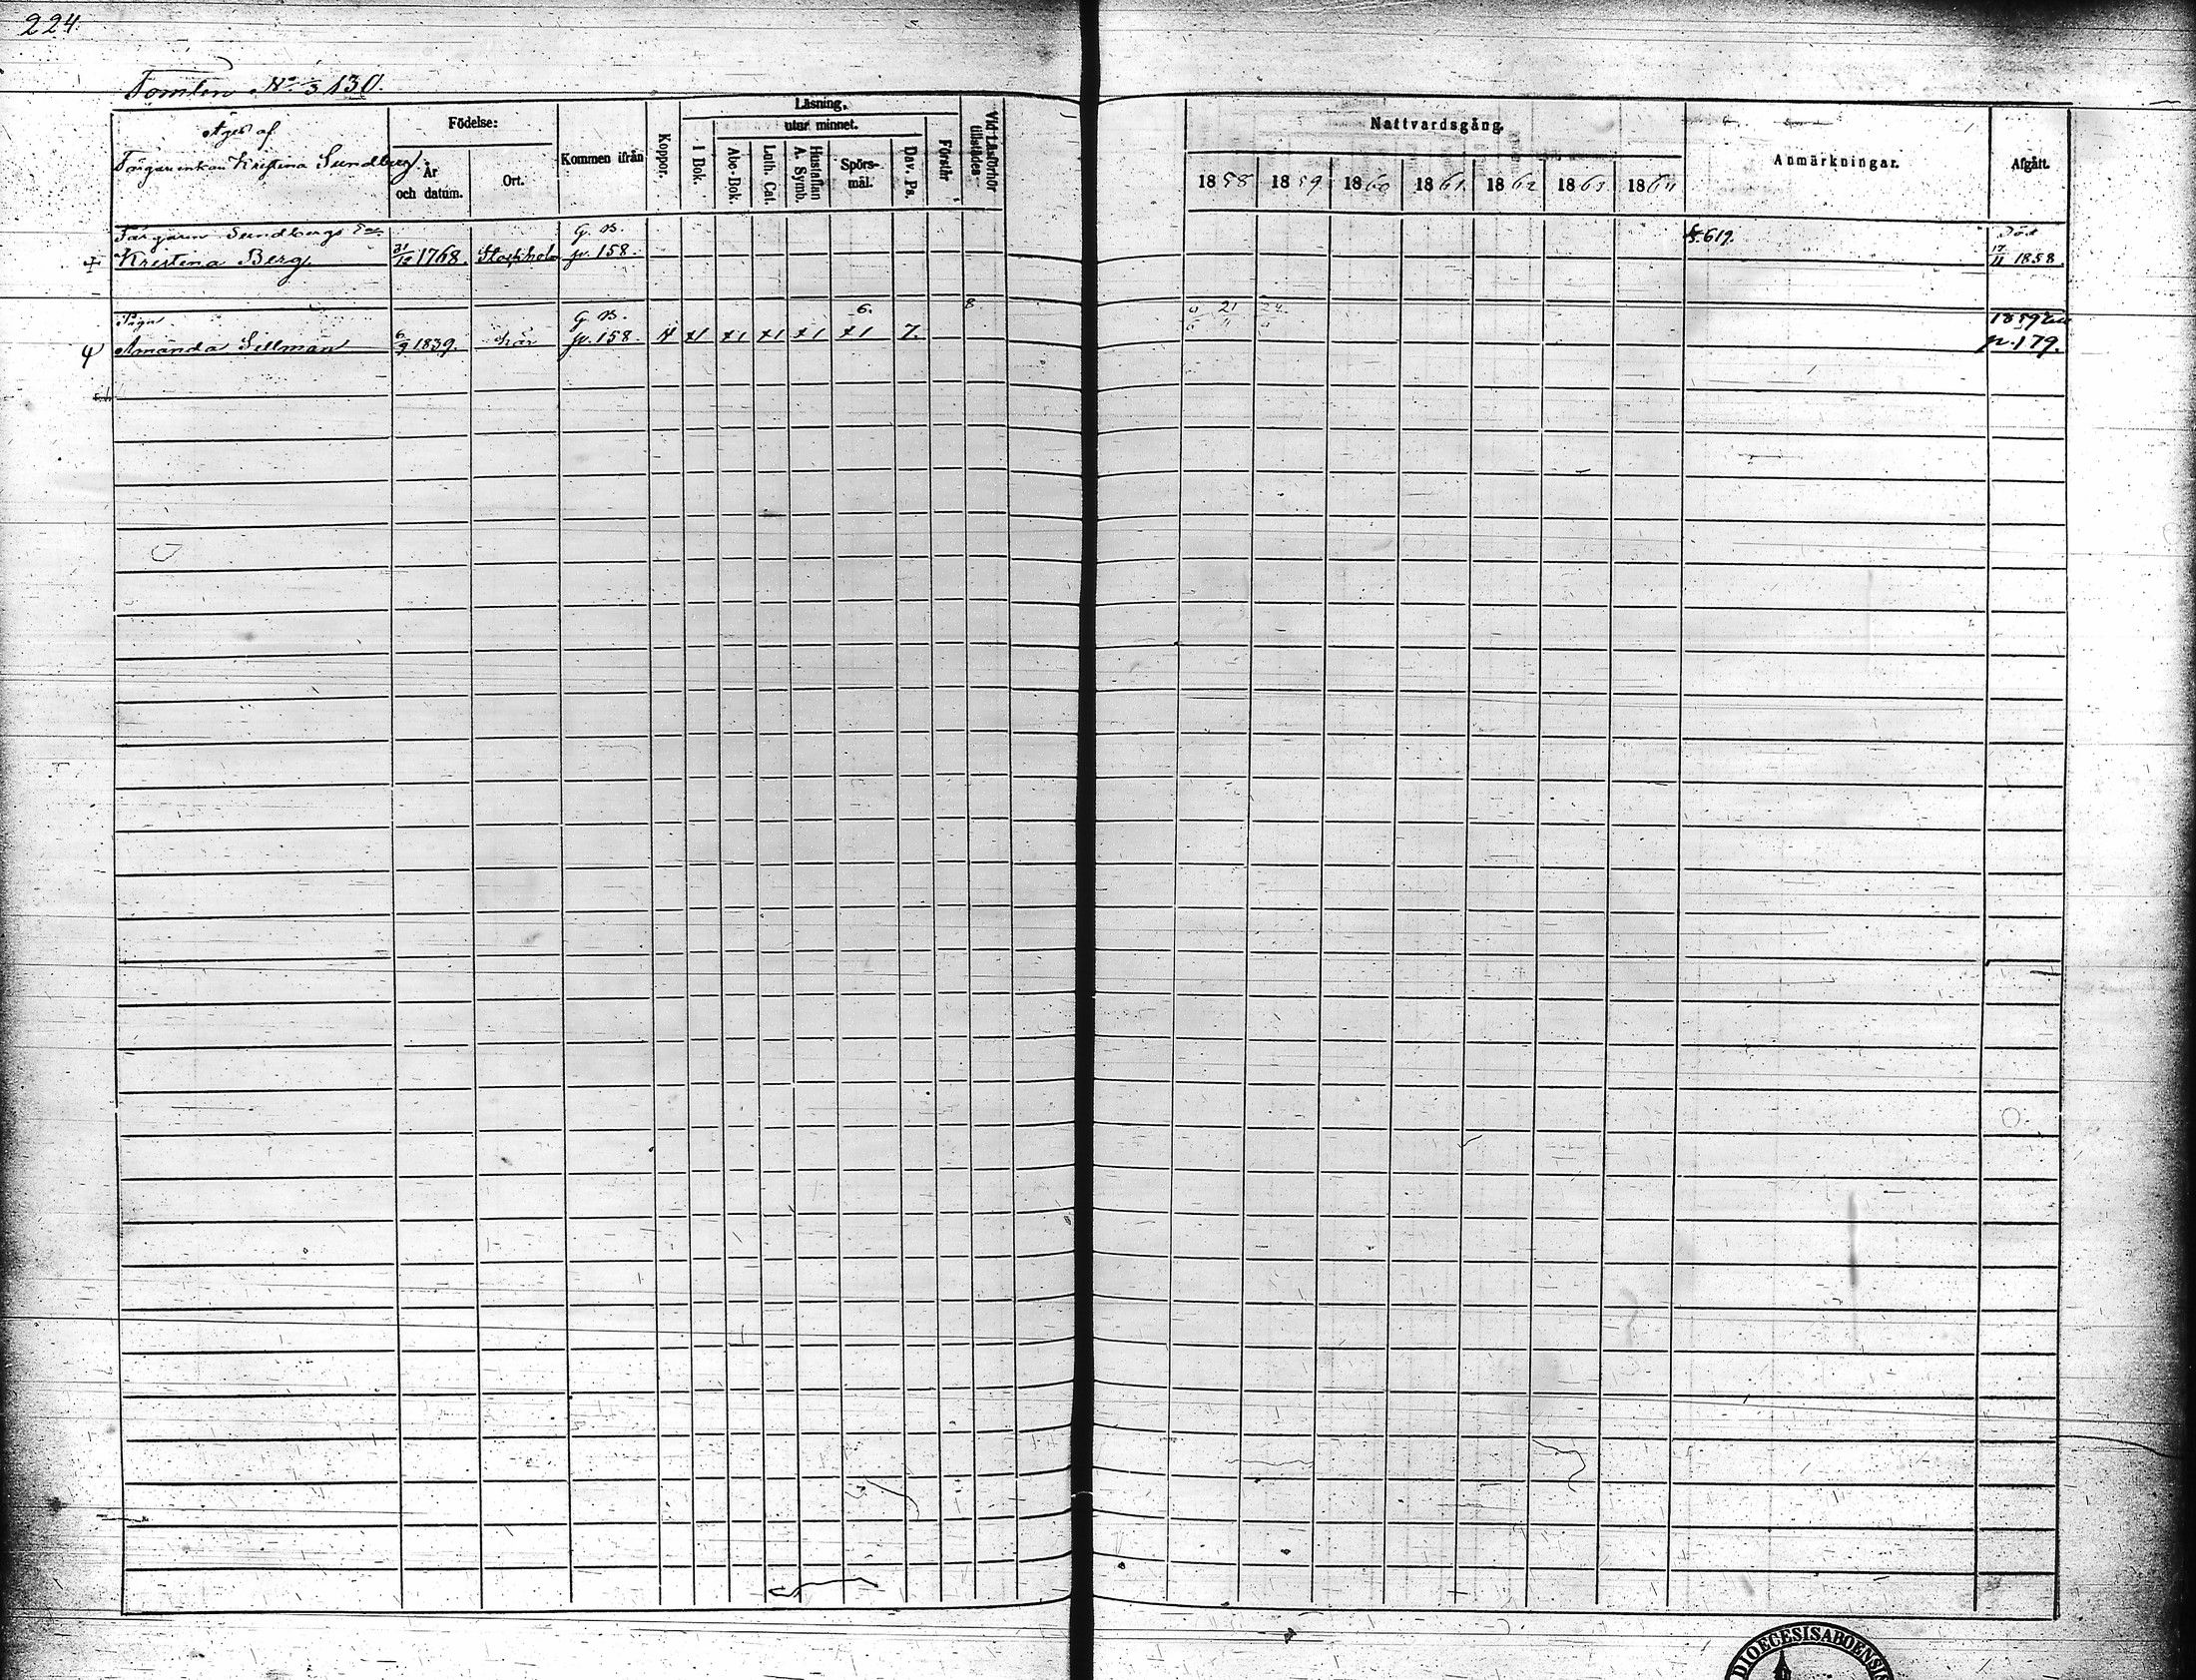 224.
Tomten No 3/130.
Äges af
Färgarenkan Kristina Sundberg.
Födelse:
År
och datum.
Ort.
Kommen ifrån
Koppor.
Läsning,
utur minnet.
I Bok.
Abc-Bok.
Luth. Cat.
Hustaflan
A. Symb.
Spörs-
mål.
Dav. Ps.
Förstår
Vid Läsförhör
tillstädes
Nattvardsgång.
1858 1859 1860 1861 1862 1863 1864
Anmärkningar.
Afgått.
Färgaren Sundbergs Ea G. B. 619. Död
Kristina Berg. 31/12 1768. Stockholm p. 158. 17/11 1858.
Piga G. B. 6. 8 21 24 1859 till
Amanda Sillman 6/9 1839. här p. 158. 7. p. 179.
DIOECESIS ABOENSIS